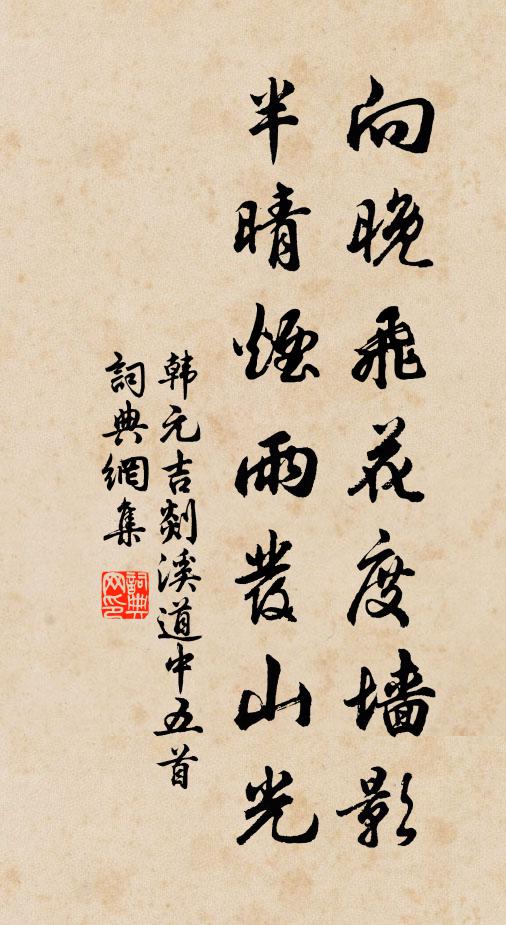 向晚飛花度墙影
半晴煙雨發山光
韩元吉剡溪道中五首
詞典網集
詞典
网印